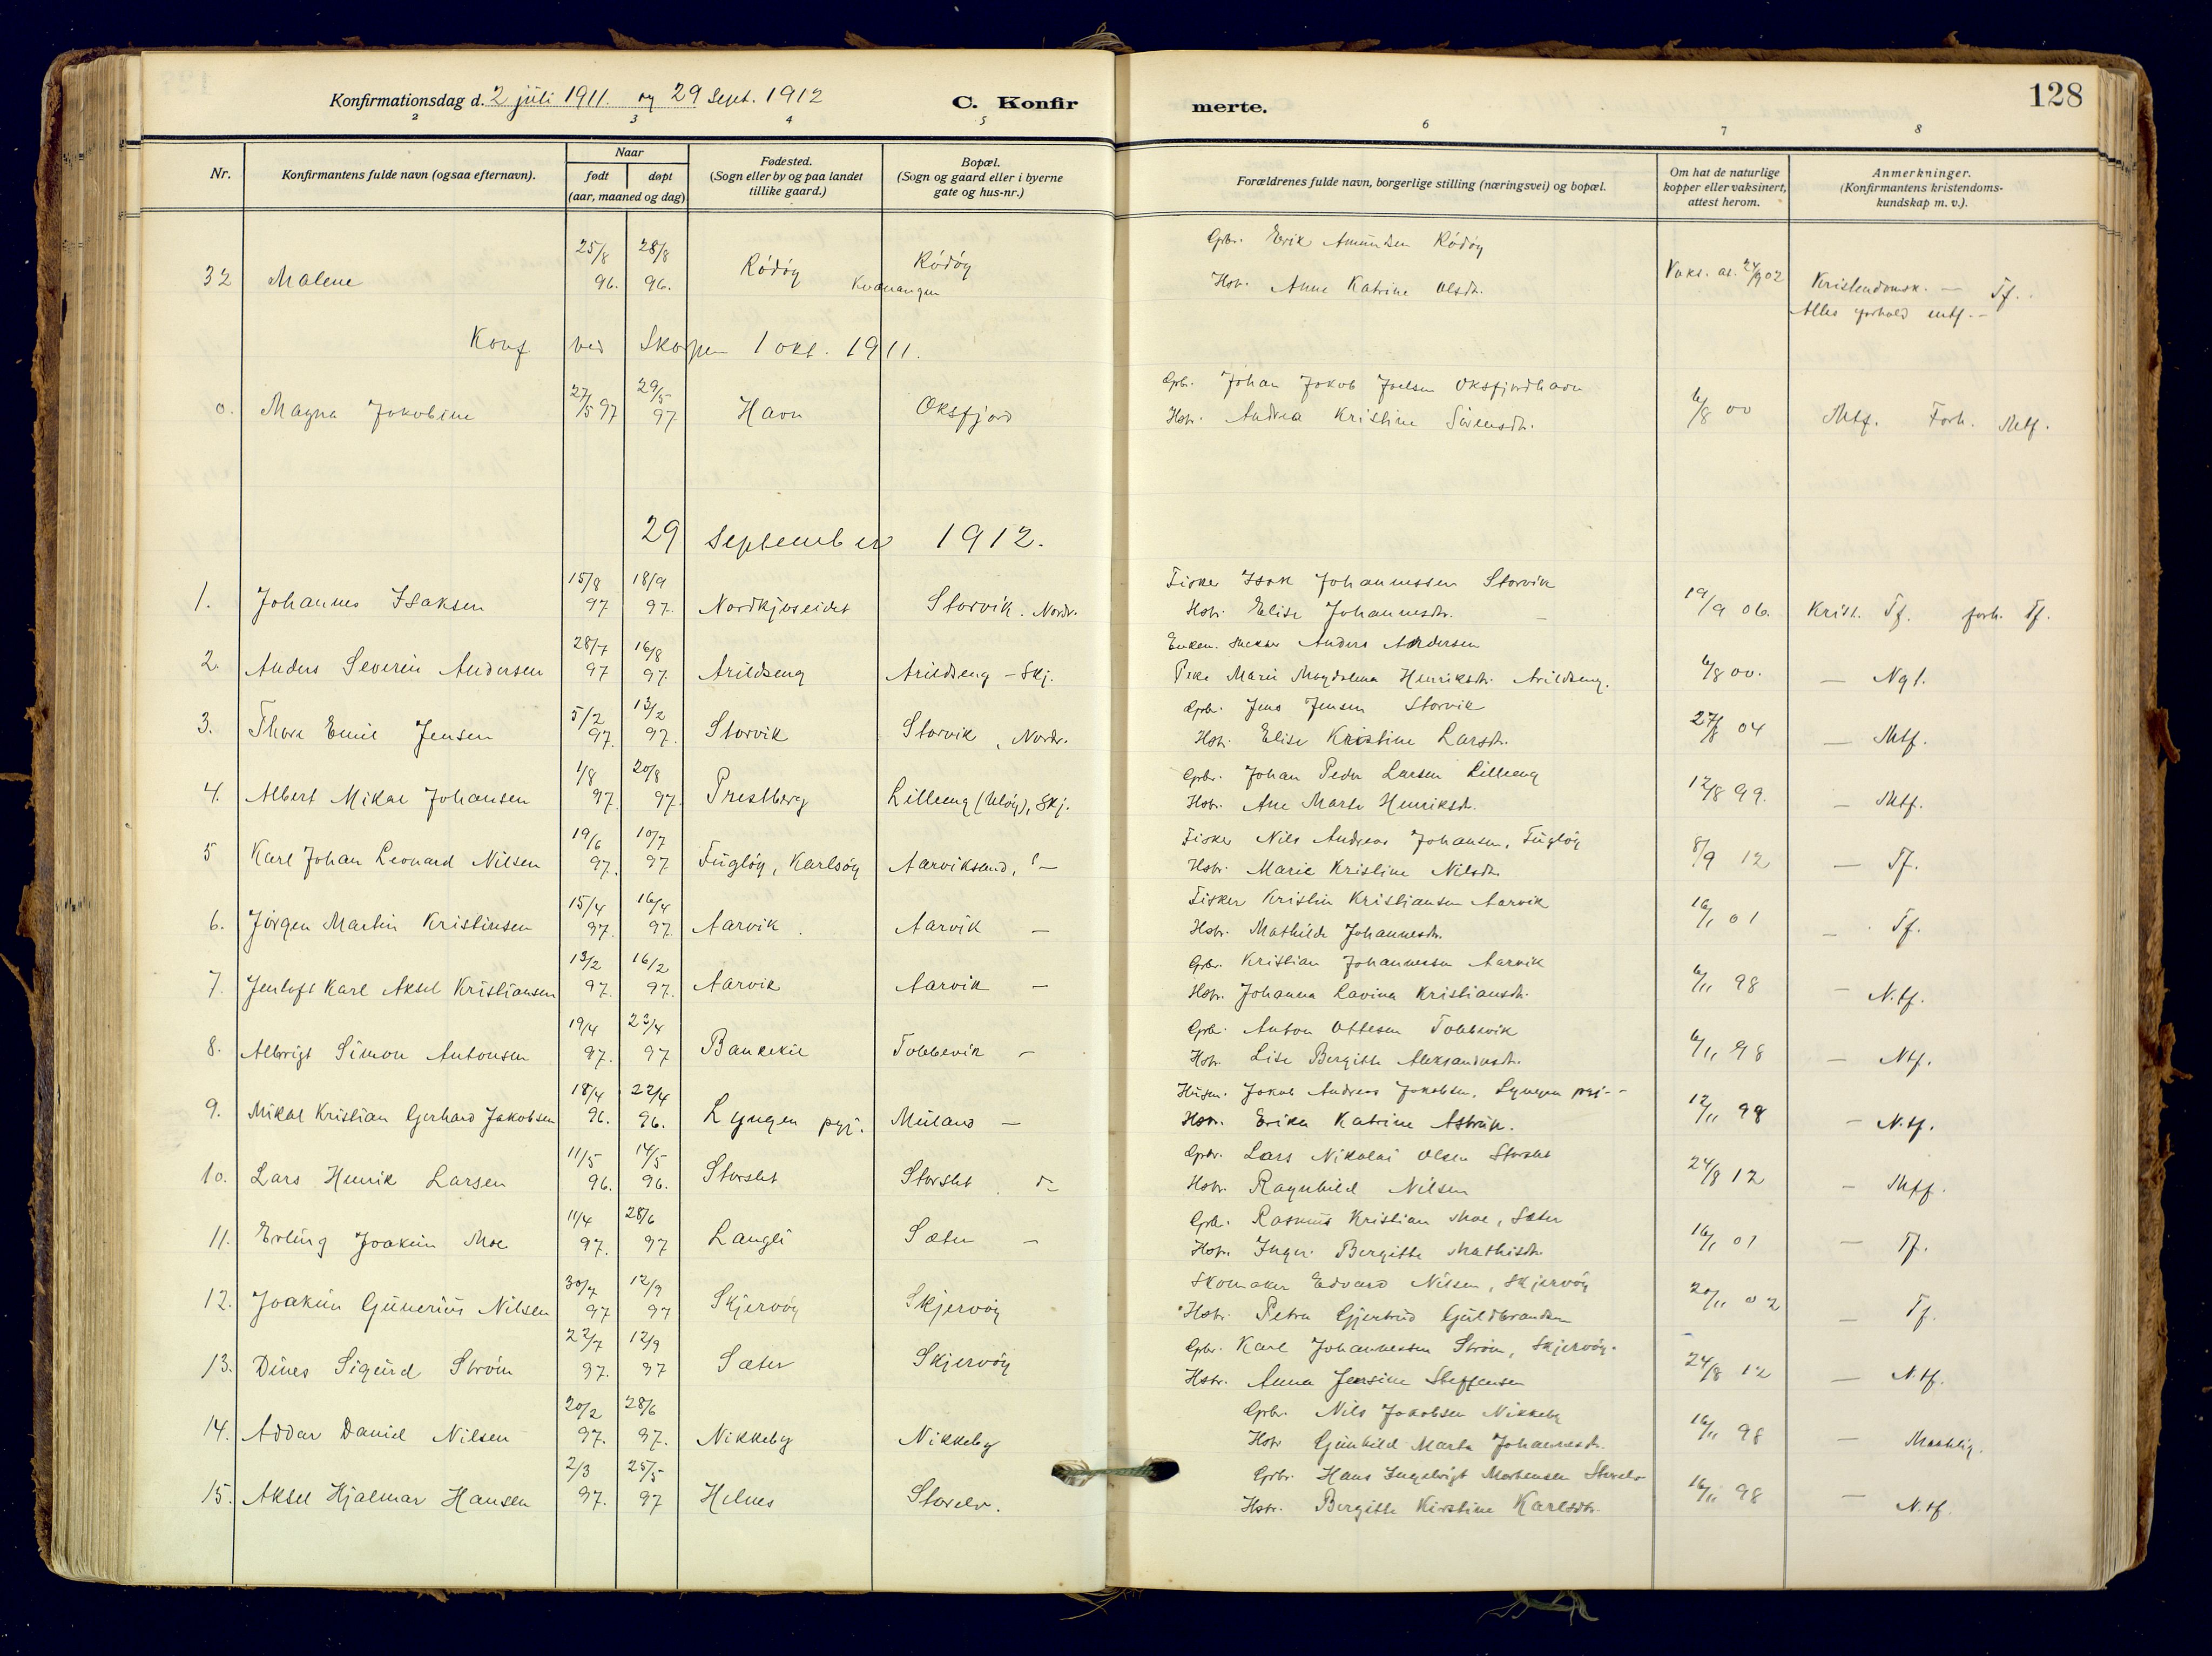 Konfirmationsdag d. 2 juli 1911. og 29 Sept. 1912 C. Konfir merte. 128
2 3 4 5 6 7 8
Nr. Konfirmantens fulde navn (ogsaa efternavn). Naar født døpt (aar, maaned og dag) Fødested. (Sogn eller by og paa landet tillike gaard.) Bopæl. (Sogn og gaard eller i byerne gate og hus-nr.) Forældrenes fulde navn, borgerlige stilling (næringsvei) og bopæl. Om hat de naturlige kopper eller vaksinert, attest herom. Anmerkninger. (Konfirmantens kristendoms-kundskap m. v.).
25/8 28/8 Rödöy Gbr. Erik Amundsen Rödöy
32 Malene 96. 96. Rödöy Kvænangen Hstr. Anne Katrine Olsdtr. Vaks. at. 24/9 02 Kristendomsk. — Tf.
Konf ved Skorpen 1 okt. 1911.
27/5 97 29/5 Gbr. Johan Jakob Joelsen Oksfjordhavn
0. Magna Jakobine 97 Havn Oksfjord Hstr. Andrea Kristine Sörensdtr. 6/8 00 Mtf. Forh. Mtf.
29 September 1912.
15/8 18/9 Fisker Isak Johannessen Storvik
1. Johannes Isaksen 97 97. Nordkjoseidet Storvik. Nordr. Hstr. Elise Johannesdtr. 19/9 06. Krist. Tf. forh. Tf.
28/7 16/8 Anders Andersen
2. Anders Severin Andersen 97 97. Arildseng Arildseng - Skj. Pike Marie Magdalena Henriksdtr. Arildseng. 6/8 00. — Ngl.
5/2 13/2 Gbr. Jens Jensen Storvik
3. Thore Emil Jensen 97. 97. Storvik Storvik, Nordr. Hstr. Elise Kristine Larsdtr. 27/8 04 — Mtf.
1/8 20/8 Gbr. Johan Peder Larsen Lilleeng
4. Albert Mikal Johansen 97. 97. Prestberg Lilleeng (Ulöy), Skj. Hstr. Ane Marta Henriksdtr. 12/8 99. — Mtf.
19/6 10/7 Fisker Nils Andreas Johansen, Fuglöy
5 Karl Johan Leonard Nilsen 97. 97 Fuglöy, Karlsöy Aarviksand, — Hstr. Marie Kristine Nilsdtr. 8/9 12 — Tf.
15/4 16/4 Fisker Kristin Kristiansen Aarvik
6. Jörgen Martin Kristinsen 97. 97. Aarvik. Aarvik — Hstr. Mathilde Johannesdtr. 16/1 01 — Tf.
13/2 16/2 Gbr. Kristian Johannessen Aarvik
7. Jentoft Karl Aksel Kristiansen 97. 97. Aarvik Aarvik — Hstr. Johanna Lavina Kristiansdtr. 6/11 98 — N.tf.
19/4 23/4 Gbr. Anton Ottesen Tobbevik
8. Albrigt Simon Antonsen 97. 97 Bankekil Tobbevik — Hstr. Lise Bergitte Aleksandersdtr. 6/11 98 — Ntf.
18/4 22/4 Husm. Jakob Andreas Jakobsen, Lyngen pgj. —
9. Mikal Kristian Gerhard Jakobsen 96. 96. Lyngen pgj. Meiland — Hstr. Erika Katrine 12/11 98 — N.tf.
11/5 14/5 Gbr. Lars Nikolai Olsen Storslet
10. Lars Henrik Larsen 96. 96. Storslet Storslet — Hstr. Ragnhild Nilsen 24/8 12 — Mtf.
11/4 28/6 Gbr. Rasmus Kristian Moe, Sæter
11. Erling Joakim Moe 97. 97 Langli Sæter — Hstr. Inger Bergitte Mathisdtr. 16/1 01 — Tf.
30/7 12/9 Skomaker Edvard Nilsen, Skjervöy
12. Joakim Gunerius Nilsen 97 97 Skjervöy Skjervöy Hstr. Petra Gjertrud Guldbrandsen 20/11 02 — Tf.
22/7 12/9 Gbr. Karl Johannessen Ström, Skjervöy.
13. Dines Sigurd Ström 97. 97 Sæter Skjervöy Hstr. Anna Jensine Steffensen 24/8 12 — N.tf.
20/2 28/6 Gbr. Nils Jakobsen Nikkeby
14. Addar Daniel Nilsen 97. 97. Nikkeby Nikkeby Hstr Gunhild Marta Johannesdtr. 16/11 98 —
2/3 25/5 Gbr. Hans Ingebrigt Mortensen Storelv
15. Aksel Hjalmar Hansen 97. 97 Helnes Storelv. Hstr. Bergitte Kirstine Karlsdtr. 16/11 98 — N.tf.